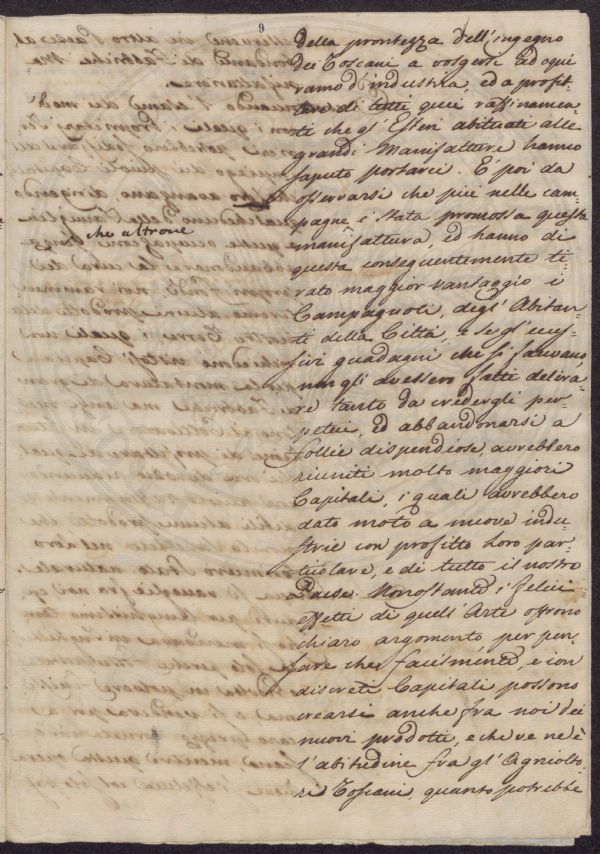 9
della prontezza dell'ingegno
dei Toscani a volgersi ad ogni
ramo d'industria, ed a profit-
tare di tutti quei raffinamen-
ti che gl'Esteri abituati alle
grandi Manifatture hanno
saputo portarci. E' poi da
osservarsi che più nelle cam-
pagne è stata promossa questa
che altrove
manifattura, ed hanno di
questa conseguentemente ti-
rato maggior vantaggio i
Campagnoli, degl'Abitan-
ti della Città, e se gl'ecces-
sivi guadagni che si facevano,
non gli avessero fatti delira-
re tanto da credergli per-
petui, ed abbandonarsi a
follie dispendiose, avrebbero
riuniti molto maggiori
Capitali, i quali avrebbero
dato moto a nuove indu-
strie con profitto loro par-
ticolare, e di tutto il nostro
Paese. Nonostante i felici
effetti di quell'Arte offrono
chiaro argomento per pen-
sare che facilmente, e con
discreti Capitali possono
crearsi anche fra noi dei
nuovi prodotti, e che ve ne è
l'abitudine fra gl'Agricolto-
ri Toscani, quanto potrebbe